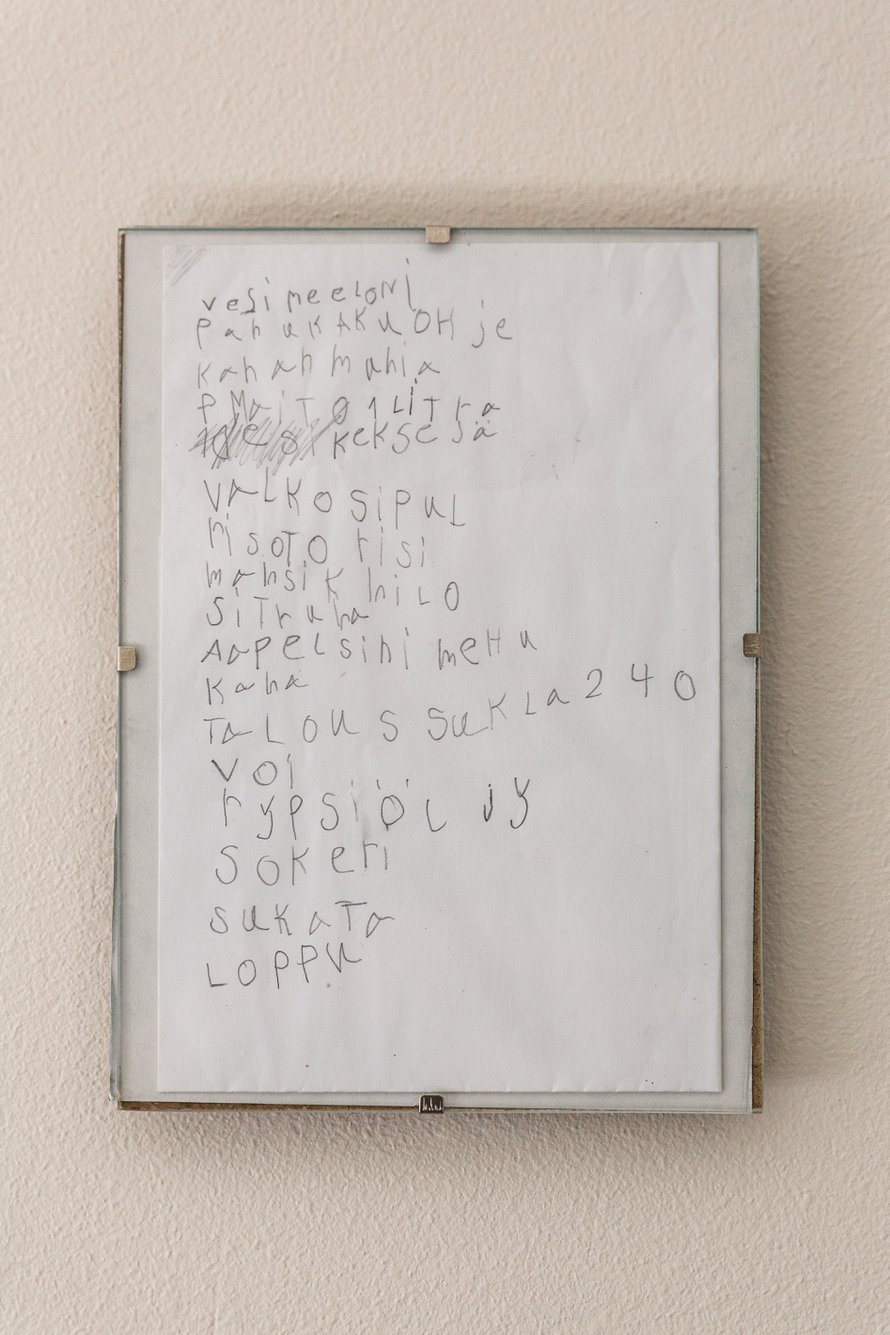 vesi meeloni
panukAKuOHje
kananmunia
PMaiTO1LiTra
keksejä
VaLKOSiPuL
RiSOTO riSi
mansik hiLO
SiTruna
AapeLsini meHu
Kana
TaLOuS SuKLa240
VOi
rypSiÖLjy
SOKeri
SuKaTa
LOPPU